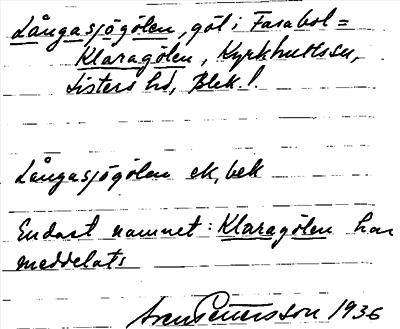 Långasjögölen, göl i Farabol =
Klaragölen, Kyrkhultssn,
Listers hd, Blek. l.
Långasjögölen ek, bek
Endast namnet: Klaragölen har
meddelats
Pettersson 1936